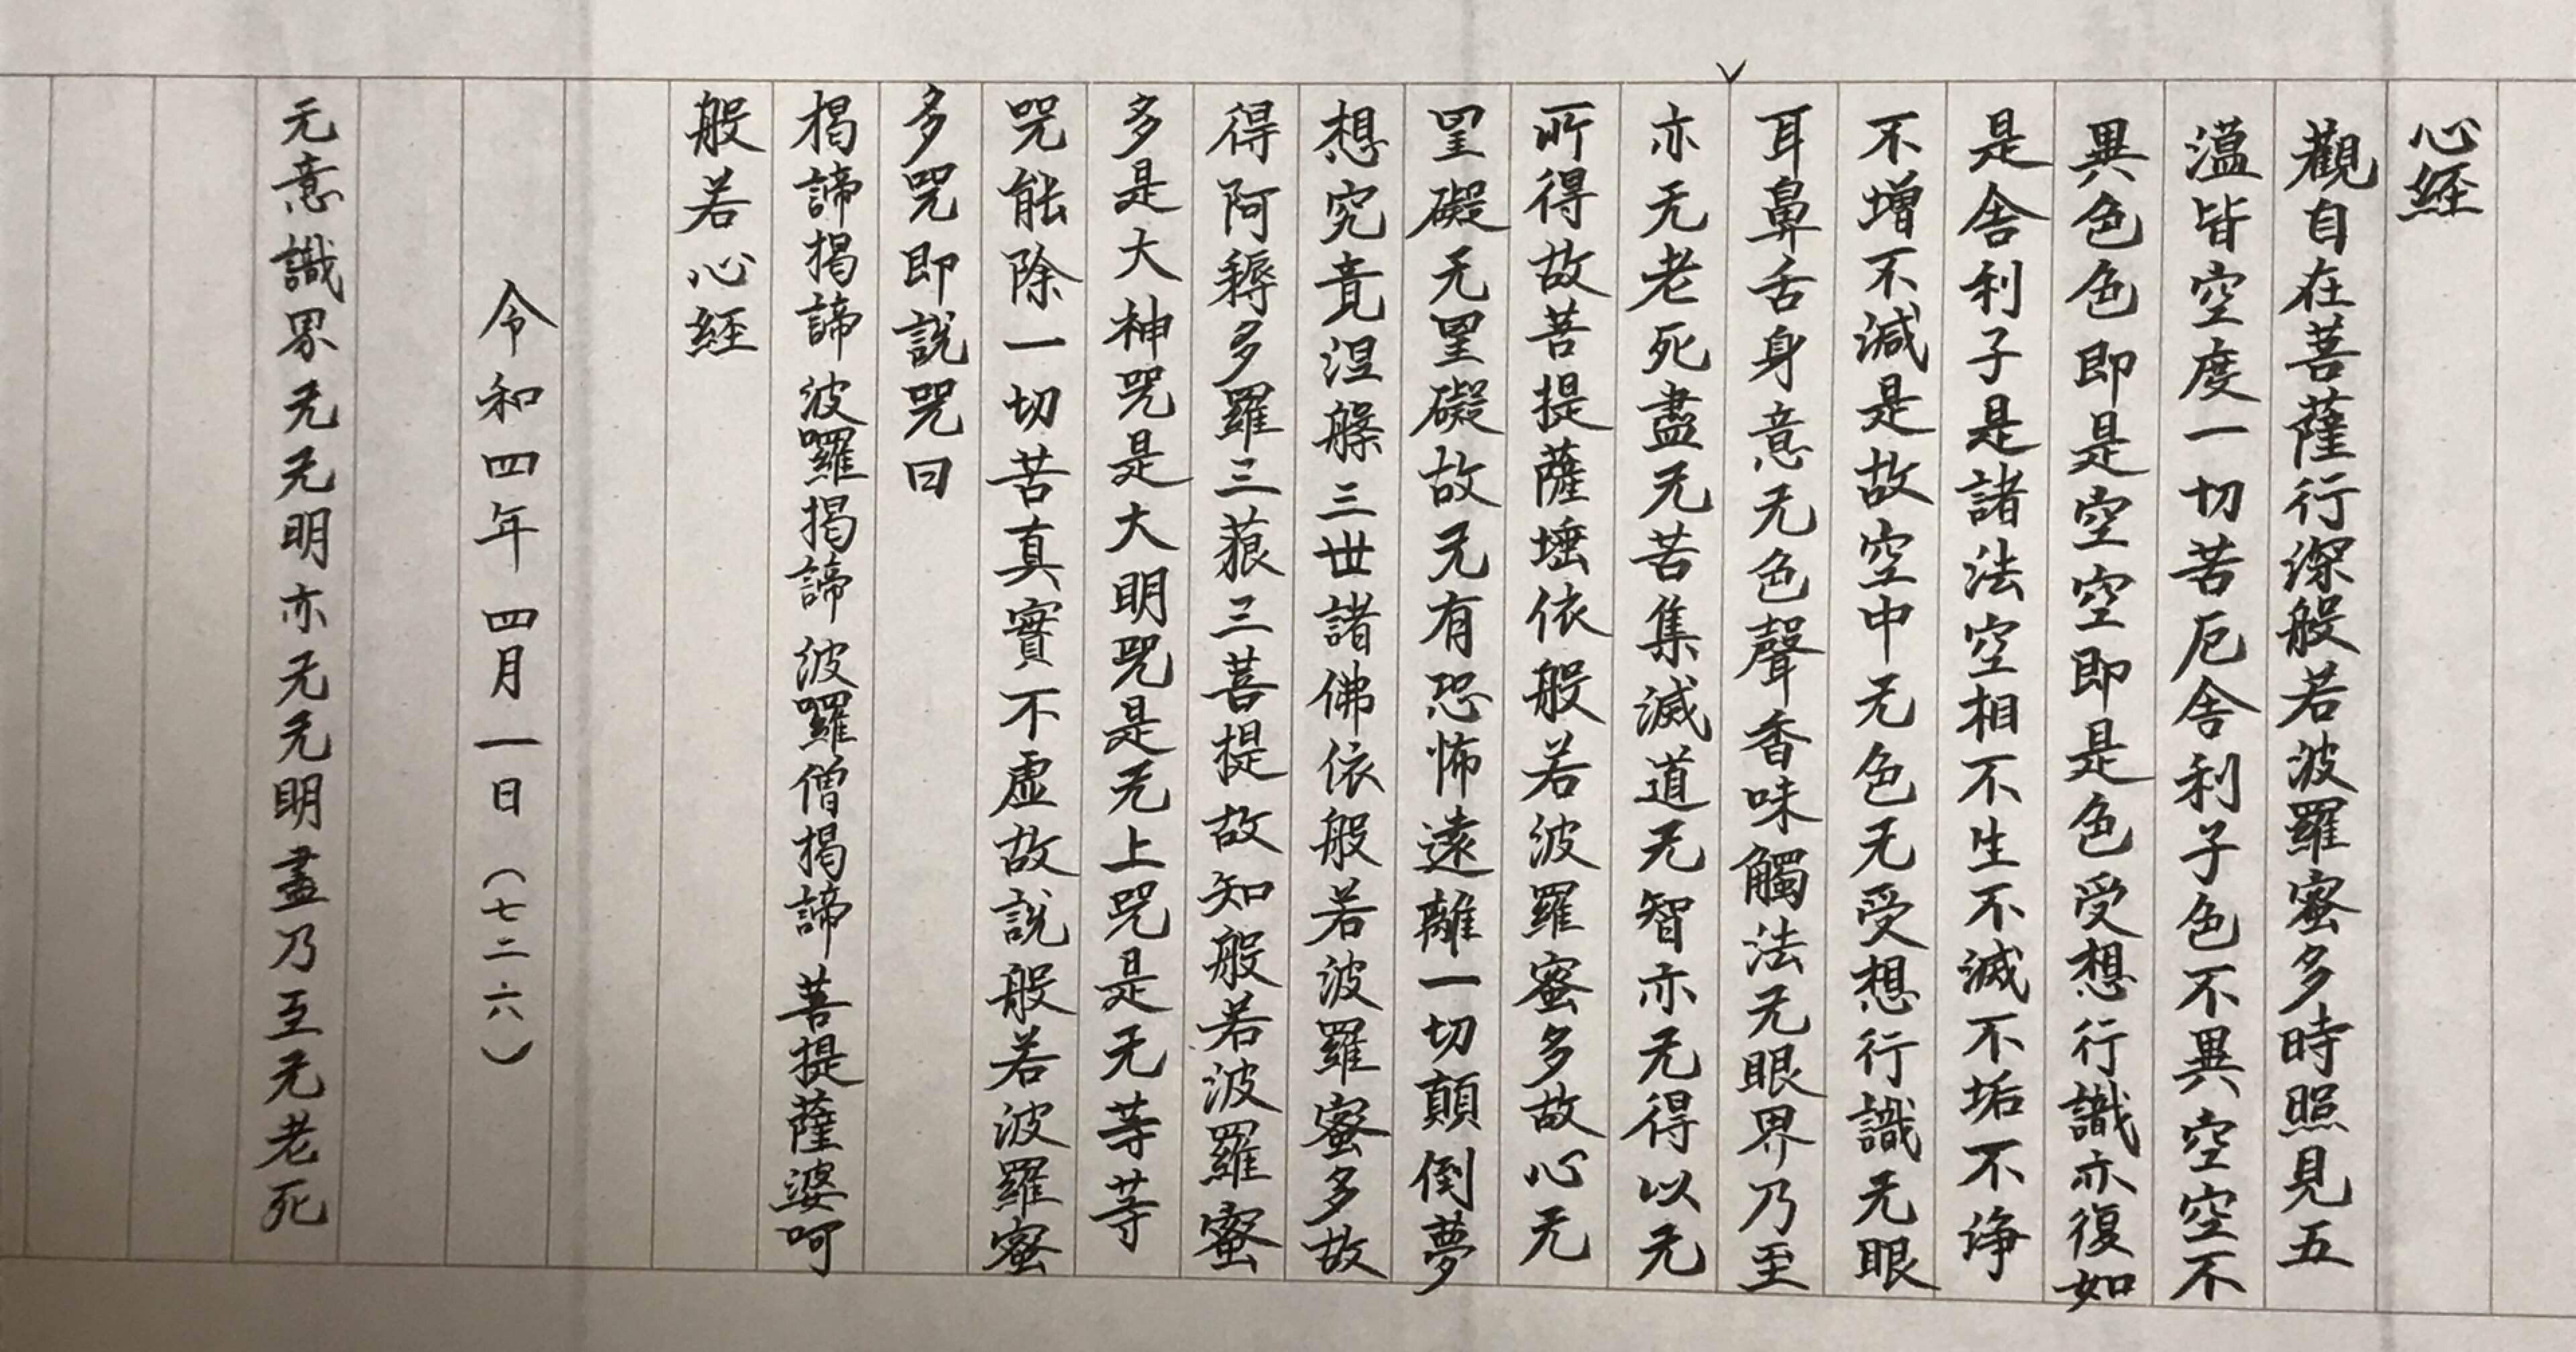 心経
觀自在菩薩行深般若波羅蜜多時照見五
薀皆空度一切苦厄舍利子色不異空空不
異色色即是空空即是色受想行識亦復如
是舍利子是諸法空相不生不滅不垢不浄
不增不減是故空中无色无受想行識无眼
耳鼻舌身意无色聲香味觸法无眼界乃至
亦无老死盡无苦集滅道无智亦无得以无
所得故菩提薩埵依般若波羅蜜多故心无
罣礙无罣礙故无有恐怖遠離一切顛倒夢
想究竟涅槃三世諸佛依般若波羅蜜多故
得阿耨多羅三藐三菩提故知般若波羅蜜
多是大神咒是大明咒是无上咒是无等等
咒能除一切苦真實不虛故說般若波羅蜜
多咒即說咒曰
揭諦揭諦 波囉揭諦 波囉僧揭諦 菩提薩婆呵
般若心経
令和四年 四月一日(七二六)
无意識界无无明亦无无明盡乃至无老死